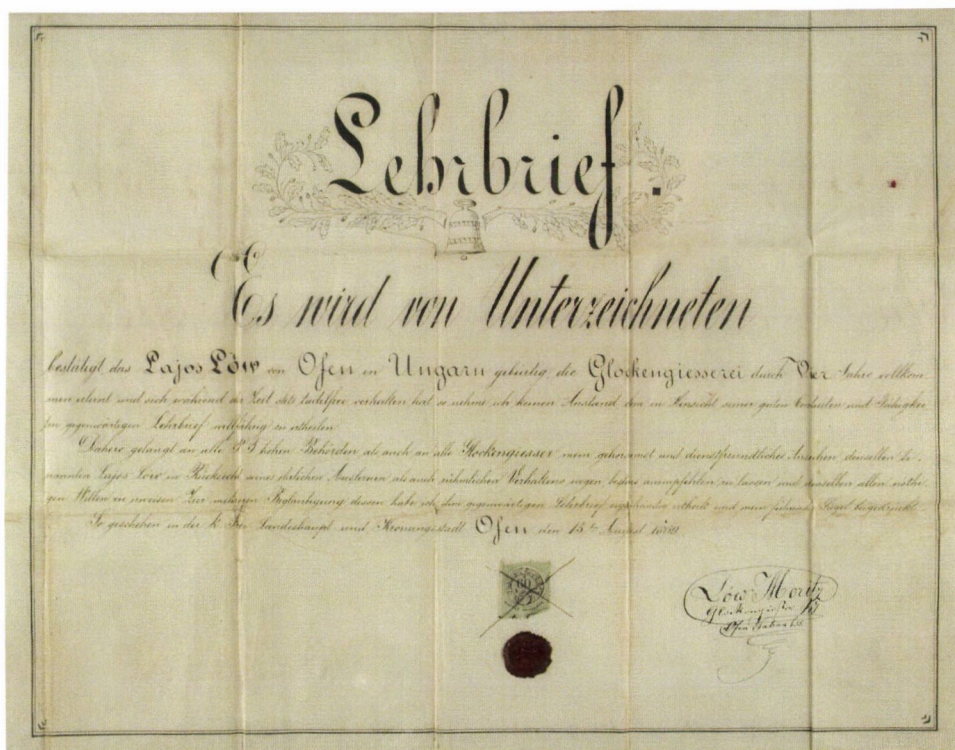 Lehrbrief.
Es wird von Unterzeichneten
bestätigt das Lajos Löw von Ofen in Ungarn gebürtig, die Glockengiesserei durch Vier Jahre vollkom-
men erlernt und sich während der Zeit stets verhalten hat so nehme ich keinen Anstand den in Hinsicht seiner guten und Fähigkei-
ten gegenwärtigen Lehrbrief zu ertheilen
Dahero gelangt an alle hohen Behörden als auch an alle Glockengiesser mein gehorsamst und dienstfreundliches Ansuchen denselben Be-
nannten Lajos Löw in Rücksicht seines als auch rühmlichen Verhaltens wegen bestens anempfehlen zu lassen und denselben allen nöthi-
gen Willen zu erweisen Zur mehreren Beglaubigung dessen habe ich ihm gegenwärtigen Lehrbrief und mein Siegel beigedrückt
So geschehen in der k. Landeshaupt und Krönungsstadt Ofen den 15 ten August
60
Löw Moritz
Glockengießer
Ofen